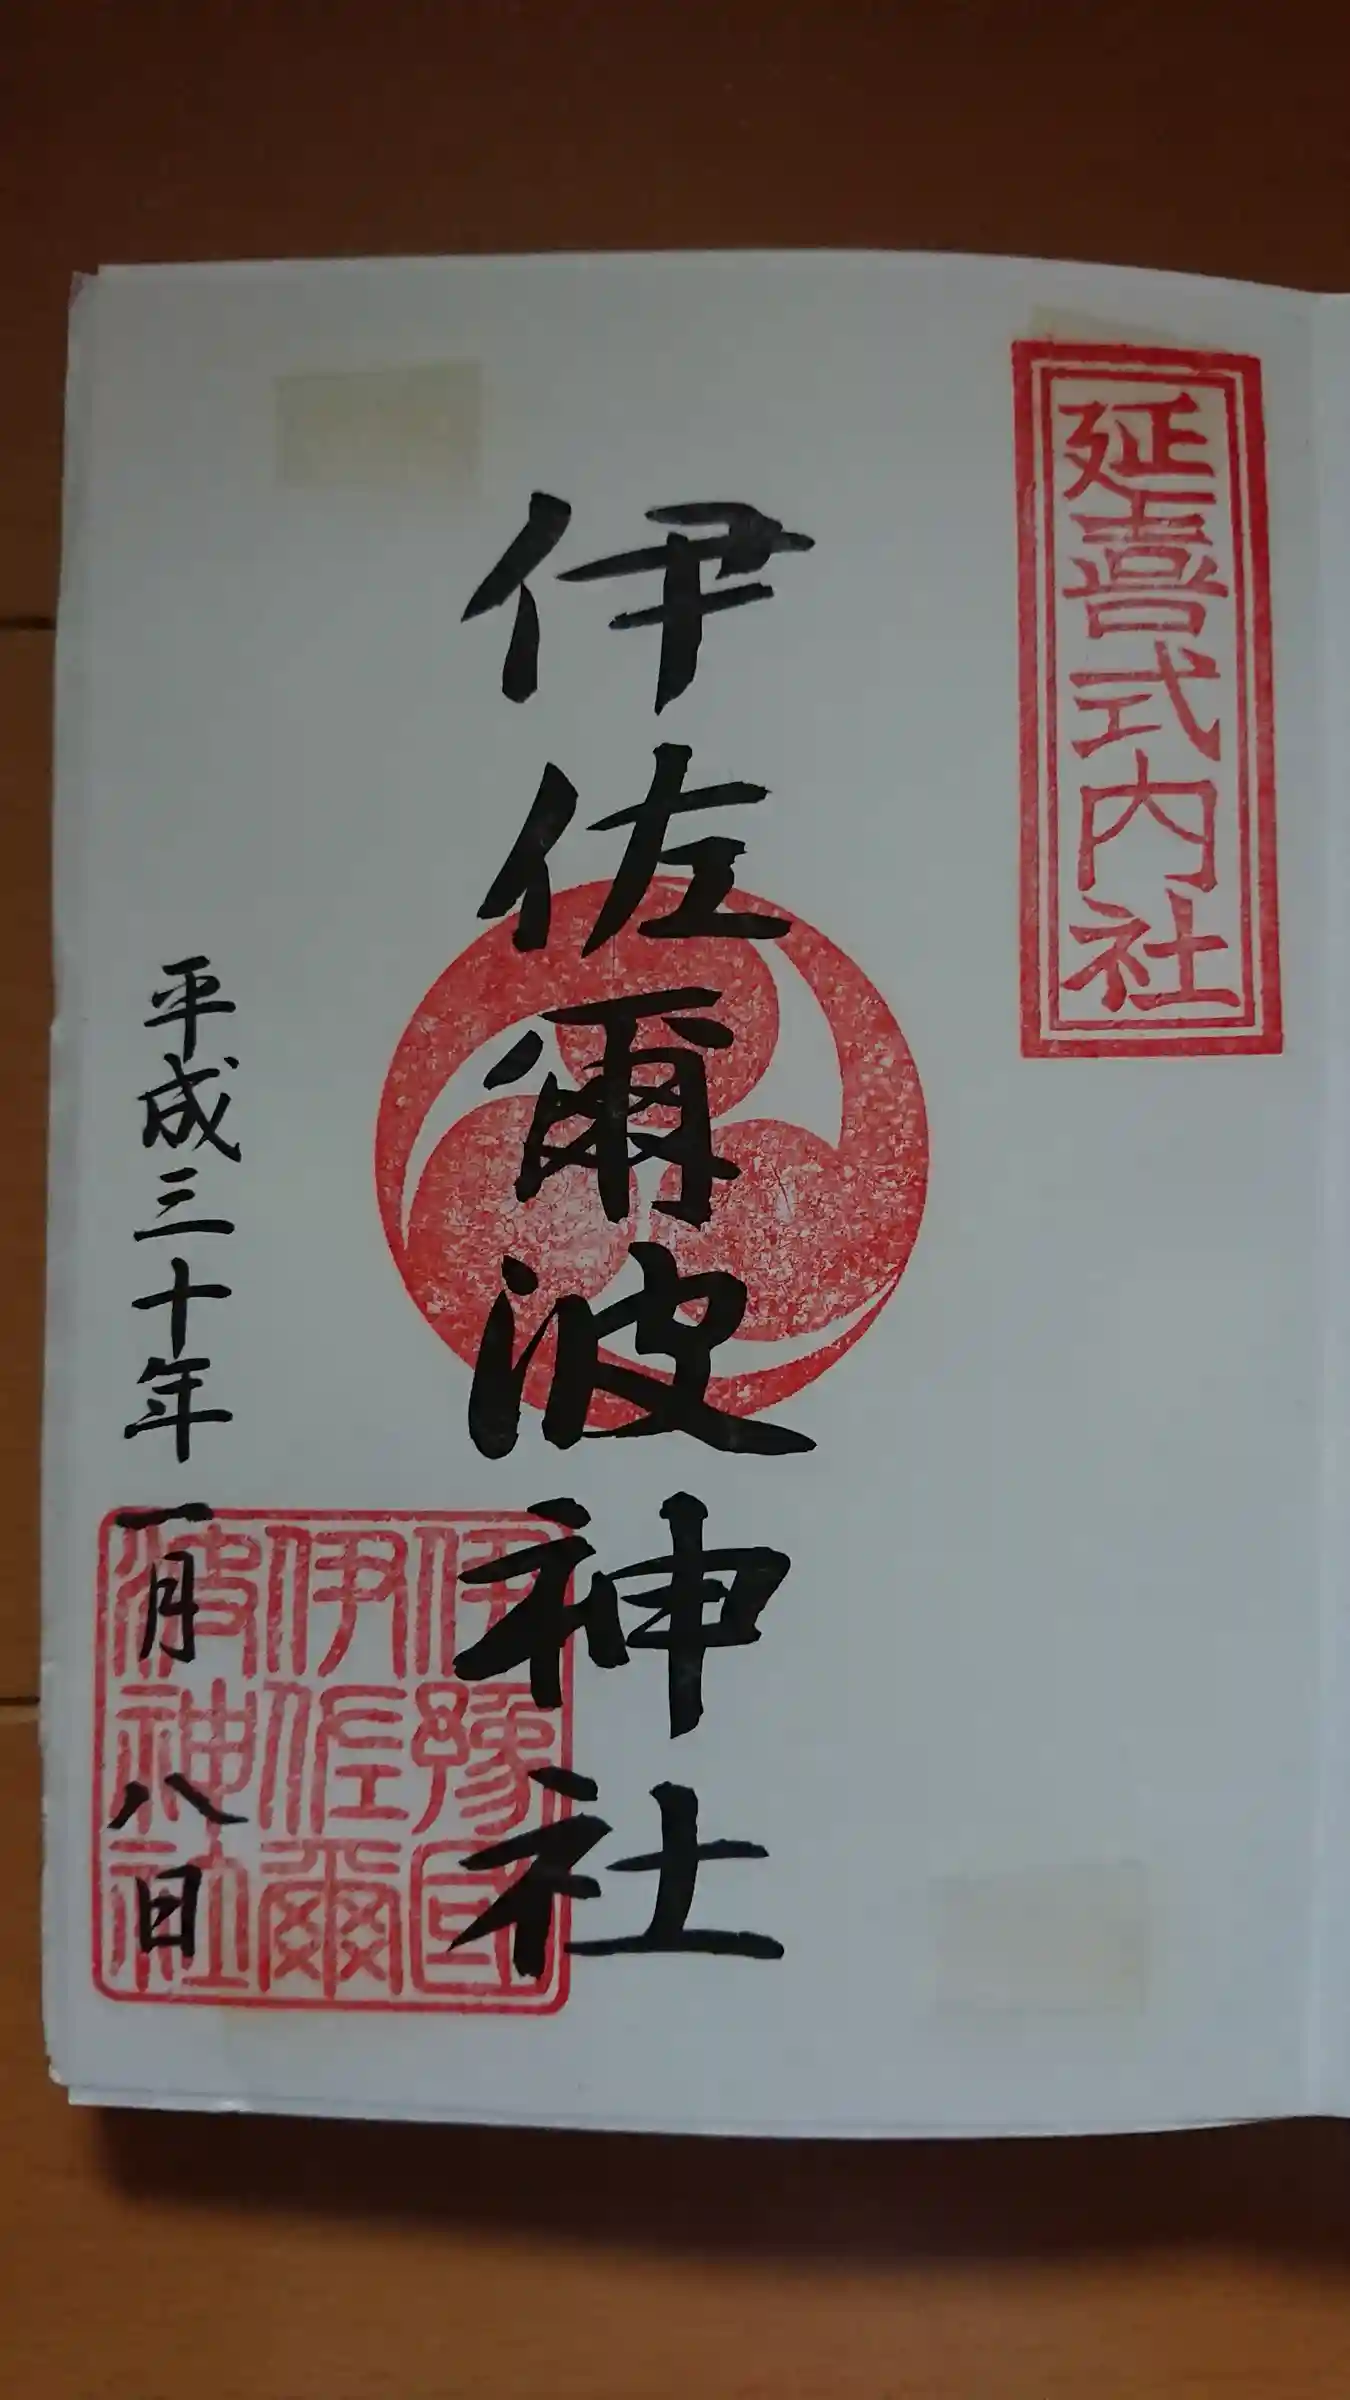 延喜式内社
伊佐爾波神社
伊豫国
伊佐爾
波神社
平成三十年一月八日